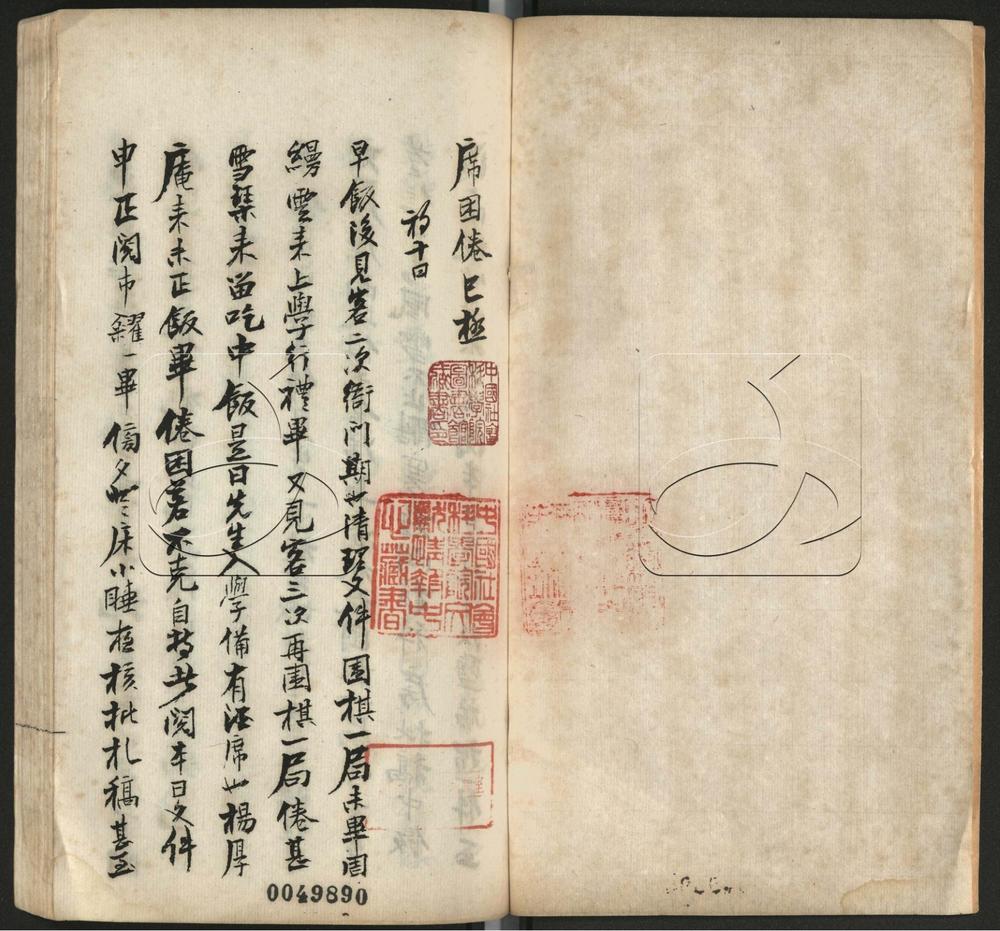 席困倦已極
初十日
早飯後見客二次衙門期也清理文件圍棋一局未畢周
縵雲来上學行禮畢又見客三次再圍棋一局倦甚
雪琴来留吃中飯是日先生入學備有酒席也楊厚
庵来未正飯畢倦困若不克自持者閱本日文件
申正閱 畢傍夕 床小睡 核批札稿甚多
中國社會科學院圖書館藏書印
中國社會科學院 之藏書
0049890